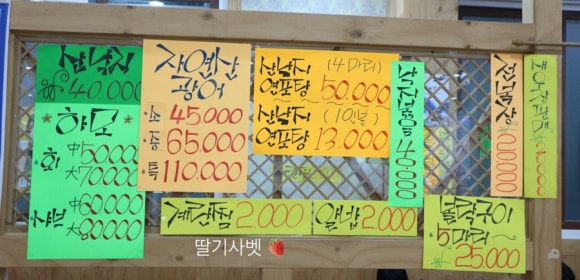 산낙지
40.000
하모
회
中 50.000
大 70.000
샤브
中 60.000
大 80.000
자연산
광어
소 45.000
중 65.000
특 110.000
산낙지 (4마리)
연포탕 50.000
산낙지 (1인분)
연포탕 13.000
낙지볶음
45.000
계란찜 2.000
알밥 2.000
볼락구이
5마리
25.000
딸기사벳 🍓